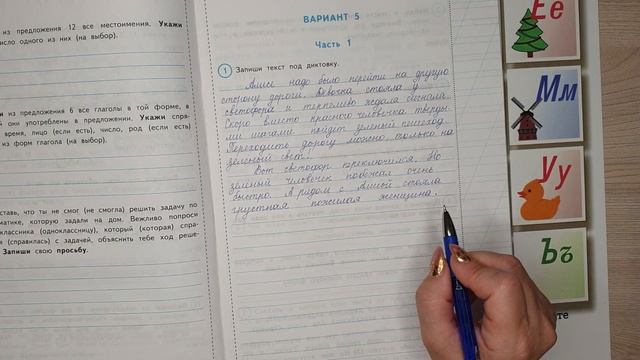 из предложения 12 все местоимения. Укажи
число одного из них (на выбор).
и из предложения 6 все глаголы в той форме, в
й они употреблены в предложении. Укажи спря-
время, лицо (если есть), число, род (если есть)
из форм глагола (на выбор).
ставь, что ты не смог (не смогла) решить задачу по
матике, которую задали на дом. Вежливо попроси
классника (одноклассницу), который (которая) спра-
(справилась) с задачей, объяснить тебе ход реше-
Запиши свою просьбу.
ВАРИАНТ 5
Часть 1
1 Запиши текст под диктовку.
Алисе надо было перейти на другую
сторону дороги. Девочка стояла у
светофора и терпеливо ждала сигнала.
Скоро вместо красного человечка тверды-
ми шагами пойдёт зелёный пешеход.
Переходить дорогу можно только на
зелёный свет!
Вот светофор переключился. Но
зелёный человечек побежал очень
быстро. А рядом с Алисой стояла
грустная пожилая женщина.
Ее
Мм
Уу
Ъъ
те